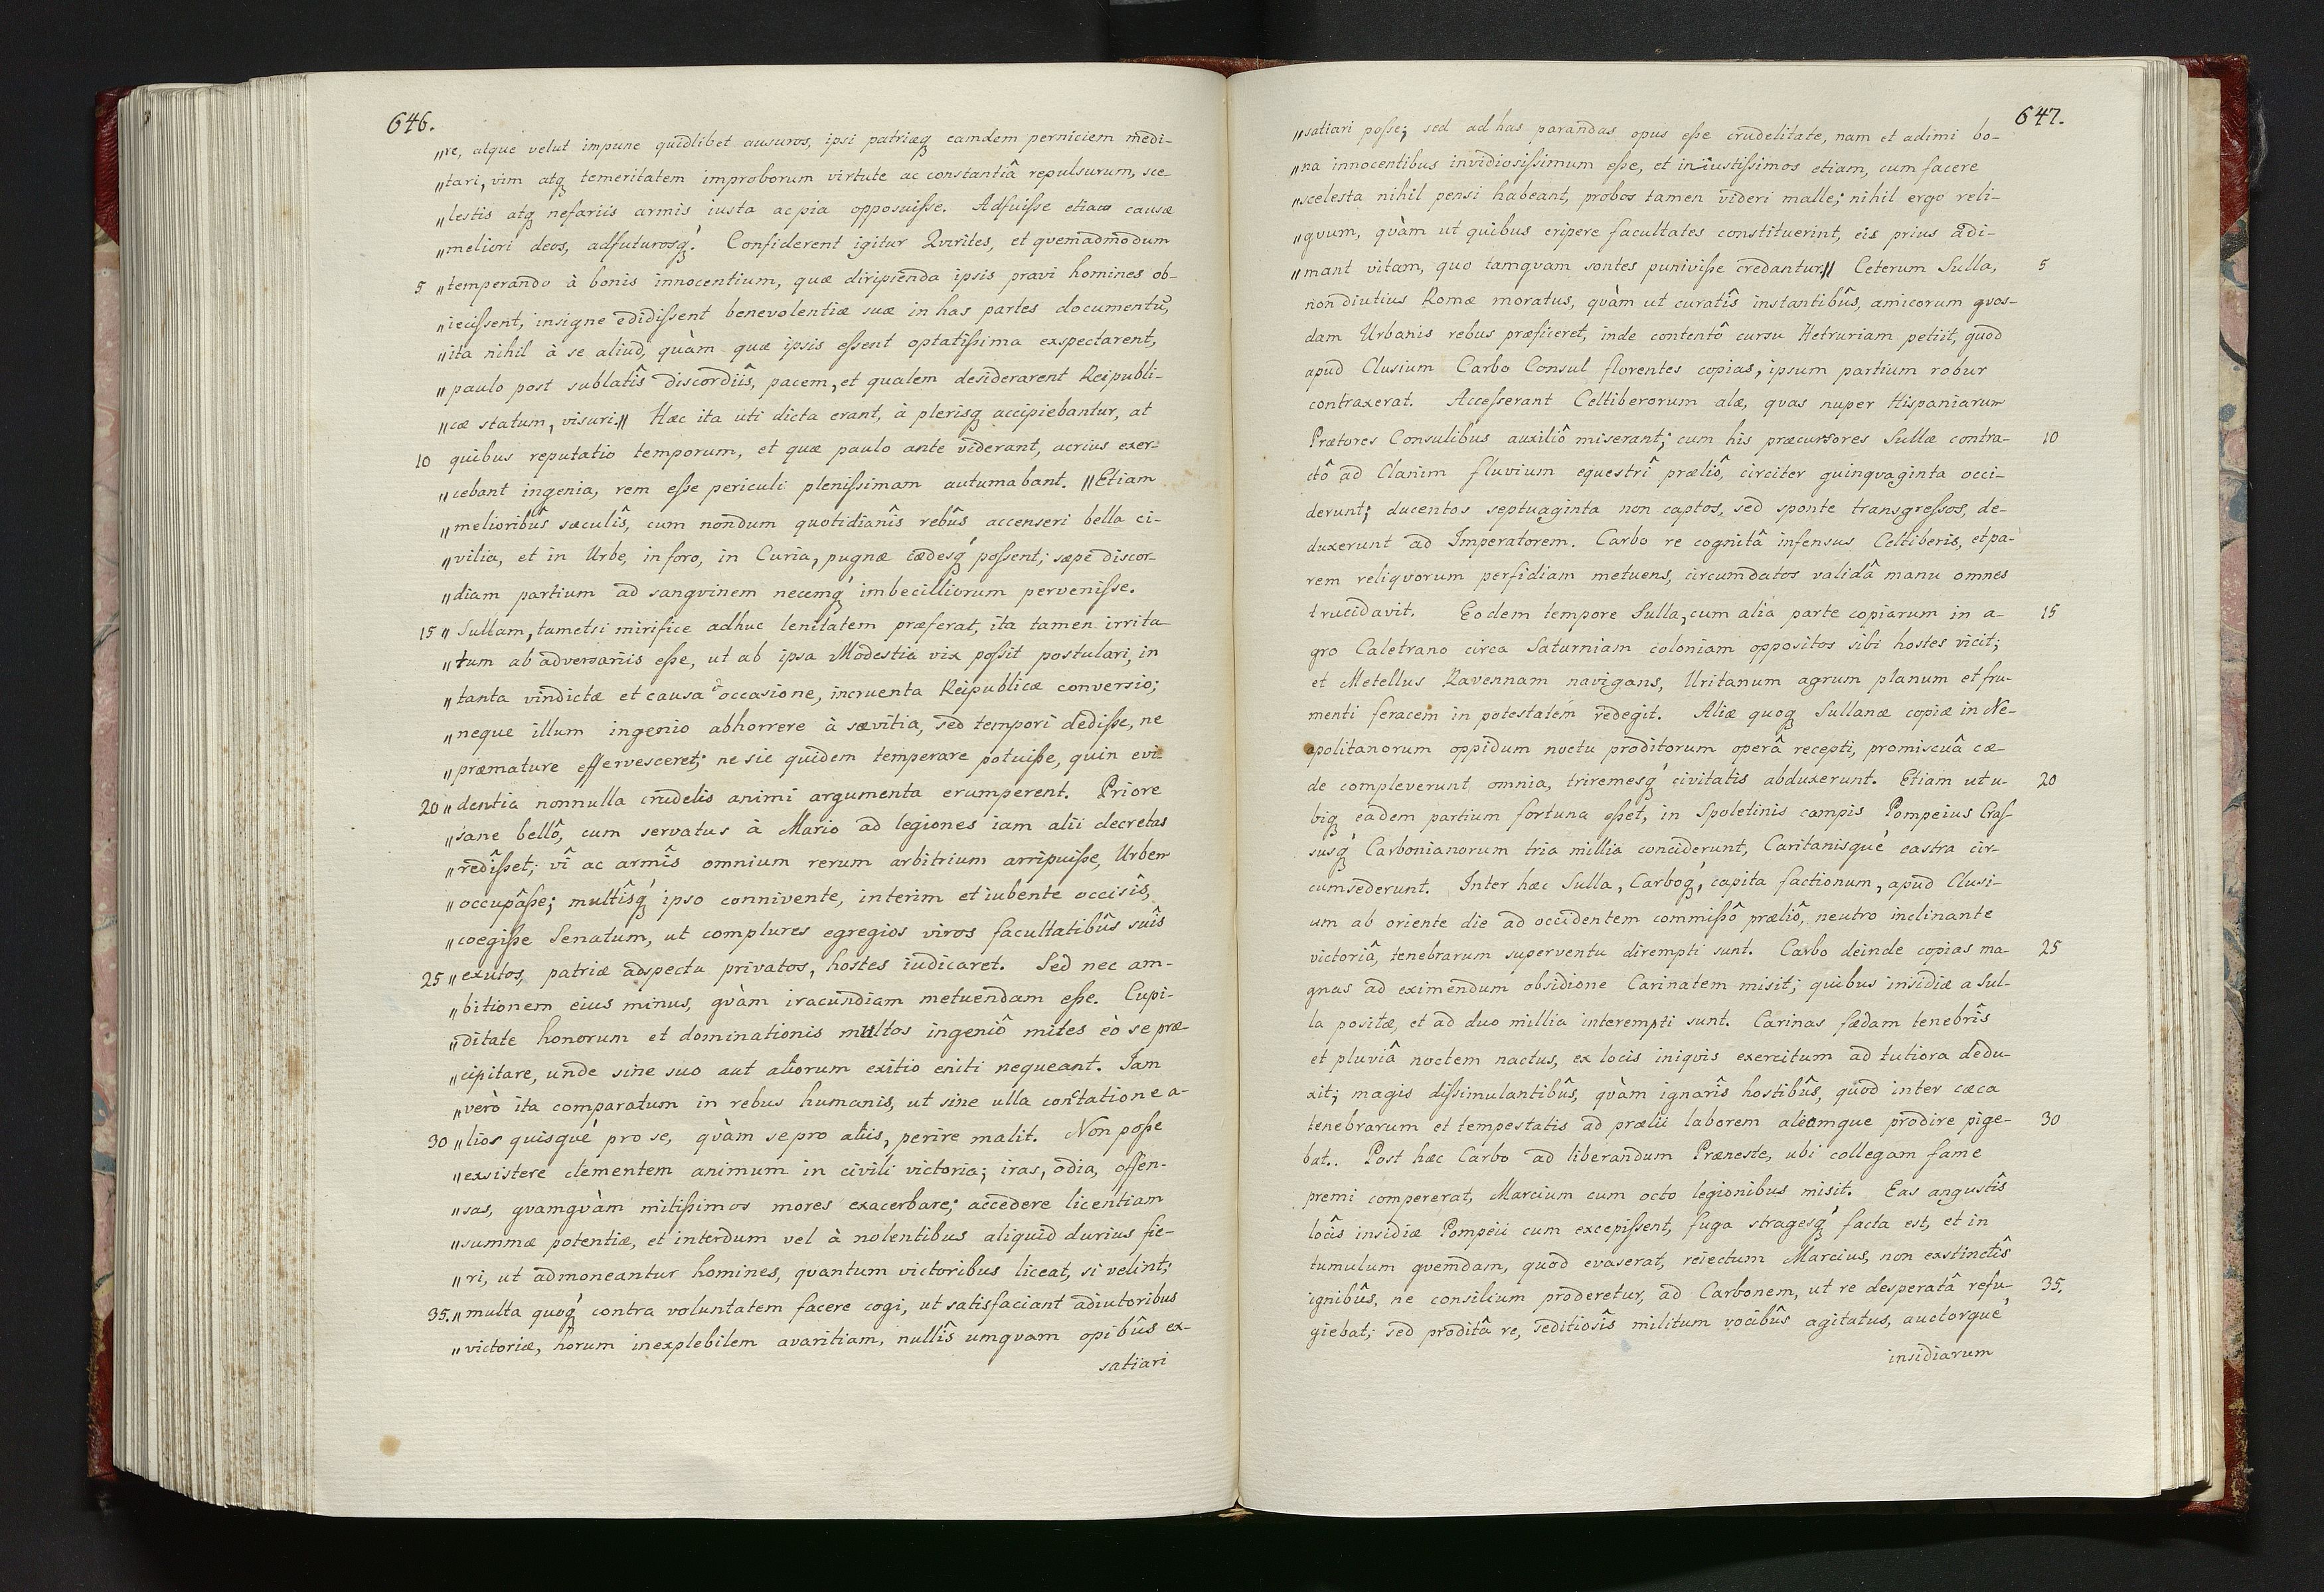 646.
"re, atque velut impune quidlibet ausuros, ipsi patriæq; eamdem perniciem medi-
"tari, vim atq; temeritatem improborum virtute ac constantiâ repulsurum, sce
"lestis atq; nefariis armis iusta ac pia opposuisse. Adfuisse etiam causæ
"meliori deos, adfuturosq;. Confiderent igitur Quirites, et quemadmodum
5 "temperando à bonis innocentium, quæ diripienda ipsis pravi homines ob-
"iecissent, insigne edidissent benevolentiæ suæ in has partes documentū,
"ita nihil à se aliud, quàm quæ ipsis essent optatissima exspectarent,
"paulo post sublatîs discordiîs, pacem, et qualem desiderarent Reipubli-
"cæ statum, visuri." Hæc ita uti dicta erant, à plerisq; accipiebantur, at
10 quibus reputatio temporum, et quæ paulo ante viderant, acrius exer-
"cebant ingenia, rem esse periculi plenissimam autumabant. "Etiam
"melioribûs sæculîs, cum nondum quotidianîs rebûs accenseri bella ci-
"vilia, et in Urbe, in foro, in Curia, pugnæ cædesq; possent; sæpe discor-
"diam partium ad sangvinem necemq; imbecilliorum pervenisse.
15 "Sullam, tametsi mirifice adhuc lenitatem præferat, ita tamen irrita
"tum ab adversariis esse, ut ab ipsa Modestia vix possit postulari, in
"tanta vindictæ et causa & occasione, incruenta Reipublicæ conversio;
"neque illum ingenio abhorrere à sævitia, sed tempori dedisse, ne
"præmature effervesceret; ne sic quidem temperare potuisse, quin evi
20 "dentia nonnulla crudelis animi argumenta erumperent. Priore
"sane bellô, cum servatus à Mario ad legiones iam alii decretas
"redîsset; vî ac armîs omnium rerum arbitrium arripuisse, Urbem
"occupâsse; multîsq; ipso connivente, interim et iubente occisîs,
"coegisse Senatum, ut complures egregios viros facultatibûs suîs
25 "exutos, patriæ adspectu privatos, hostes iudicaret. Sed nec am-
"bitionem eius minus, qvàm iracundiam metuendam esse. Cupi-
"ditate honorum et dominationis multos ingeniô mites eò se præ
"cipitare, unde sine suo aut aliorum exitio eniti nequeant. Iam
"verò ita comparatum in rebus humanis, ut sine ulla contatione a-
30 "lios quisquè pro se, qvàm se pro aliis, perire malit. Non posse
"exsistere clementem animum in civili victoria; iras, odia, offen-
"sas, qvamqvàm mitissimos mores exacerbare; accedere licentiam
"summæ potentiæ, et interdum vel à nolentibus aliquid durius fie-
"ri, ut admoneantur homines, qvantum victoribus liceat, si velint;
35. "multa quoq; contra voluntatem facere cogi, ut satisfaciant adiutoribus
"victoriæ, horum inexplebilem avaritiam, nullîs umqvam opibûs ex-
satiari
647.
"satiari posse; sed ad has parandas opus esse crudelitate, nam et adimi bo-
"na innocentibus invidiosissimum esse, et iniustissimos etiam, cum facere
"scelesta nihil pensi habeant, probos tamen videri malle; nihil ergo reli-
"qvum, qvàm ut quibus eripere facultates constituerint, eis prius adi-
"mant vitam, quo tamqvam sontes punivisse credantur." Ceterum Sulla, 5
non diutius Romæ moratus, qvàm ut curatîs instantibûs, amicorum qvos-
dam Urbanis rebus præficeret, inde contentô cursu Hetruriam petiit, quod
apud Clusium Carbo Consul florentes copias, ipsum partium robur
contraxerat. Accesserant Celtiberorum alæ, qvas nuper Hispaniarum
Prætores Consulibus auxiliô miserant; cum his præcursores Sullæ contra- 10
ctô ad Clanim fluvium equestrî præliô, circiter quinqvaginta occi-
derunt; ducentos septuaginta non captos, sed sponte transgressos, de-
duxerunt ad Imperatorem. Carbo re cognitâ infensus Celtiberis, et pa-
rem reliqvorum perfidiam metuens, circumdatos validâ manu omnes
trucidavit. Eodem tempore Sulla, cum alia parte copiarum in a- 15
gro Caletrano circa Saturniam coloniam oppositos sibi hostes vicit;
et Metellus Ravennam navigans, Uritanum agrum planum et fru-
menti feracem in potestatem redegit. Aliæ quoq; Sullanæ copiæ in Ne-
apolitanorum oppidum noctu proditorum operâ recepti, promiscuâ cæ-
de compleverunt omnia, triremesq; civitatis abduxerunt. Etiam ut u- 20
biq; eadem partium fortuna esset, in Spoletinis campis Pompeius Cras-
susq; Carbonianorum tria millia conciderunt, Caritanisquè castra cir-
cumsederunt. Inter hæc Sulla, Carboq;, capita factionum, apud Clusi-
um ab oriente die ad occidentem commissô præliô, neutro inclinante
victoriâ, tenebrarum superventu dirempti sunt. Carbo deinde copias ma- 25
gnas ad eximendum obsidione Carinatem misit; quibus insidiæ a Sul-
la positæ, et ad duo millia interempti sunt. Carinas fædam tenebrîs
et pluviâ noctem nactus, ex locis iniqvis exercitum ad tutiora dedu-
xit; magis dissimulantibûs, qvàm ignarîs hostibûs, quod inter cæca
tenebrarum et tempestatis ad prælii laborem aleamque prodire pige- 30
bat. Post hæc Carbo ad liberandum Præneste, ubi collegam fame
premi compererat, Marcium cum octo legionibus misit. Eas angustîs
locîs insidiæ Pompeii cum excepissent, fuga stragesq; facta est, et in
tumulum qvemdam, quod evaserat, reiectum Marcius, non exstinctîs
ignibûs, ne consilium proderetur, ad Carbonem, ut re desperatâ refu- 35.
giebat; sed proditâ re, seditiosîs militum vocibûs agitatus, auctorquè
insidiarum